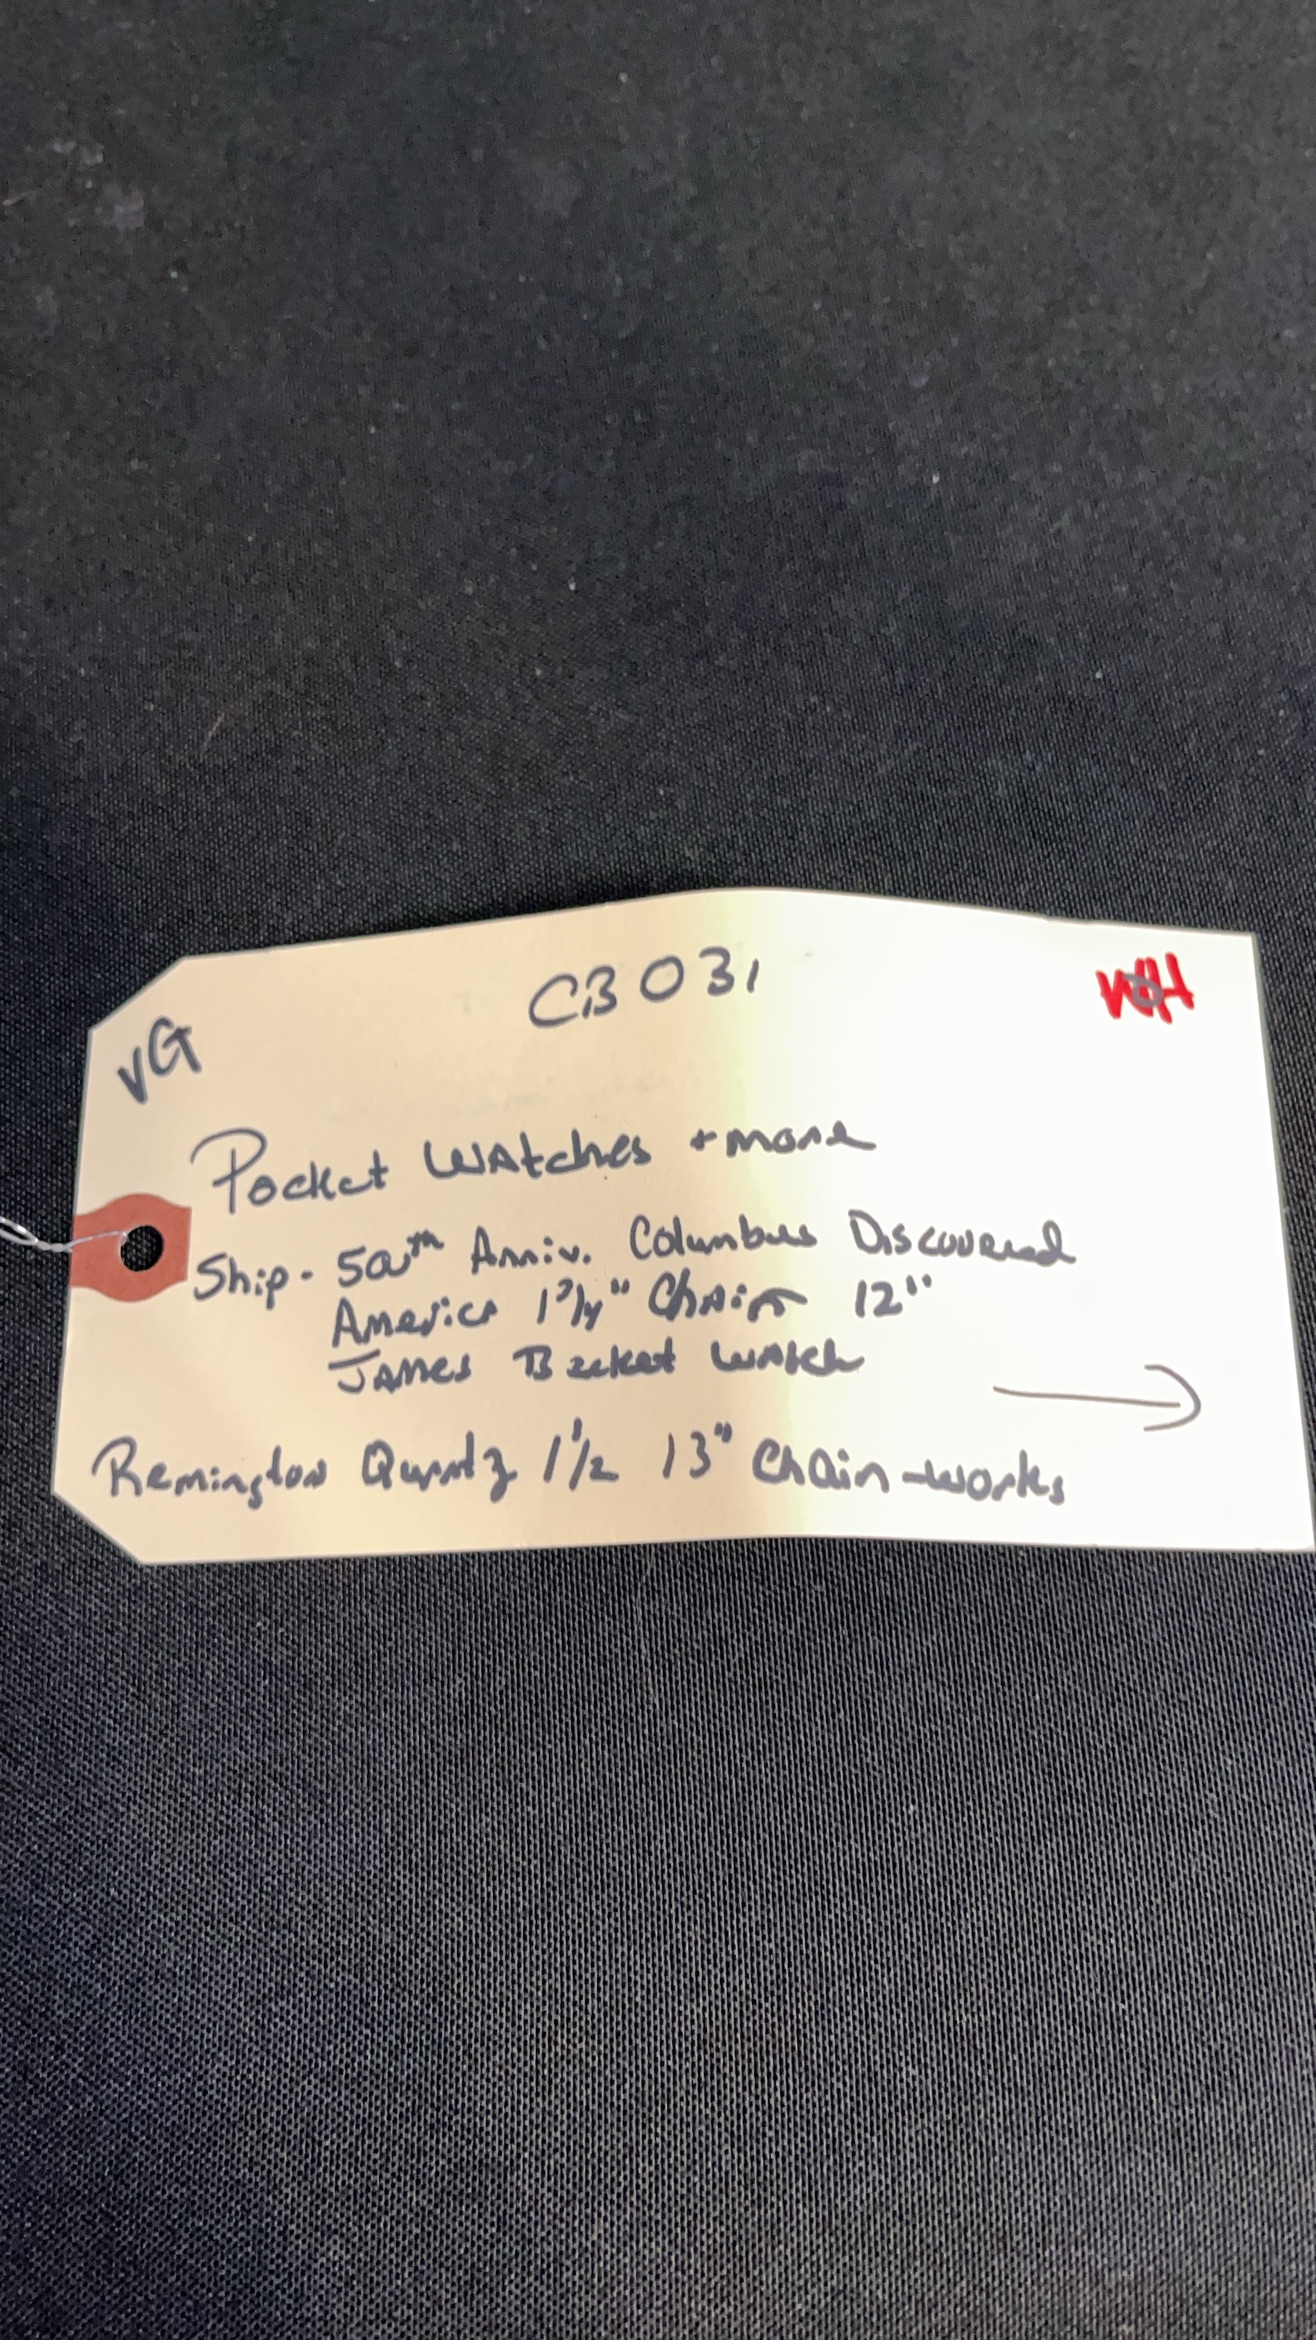 CB031
WH
VG
Pocket Watches + more
Ship - 500th Anniv. Columbus Discovered
America 1 3/4" Chain 12"
James Becket Watch
Remington Quartz 1 1/2 13" Chain - works